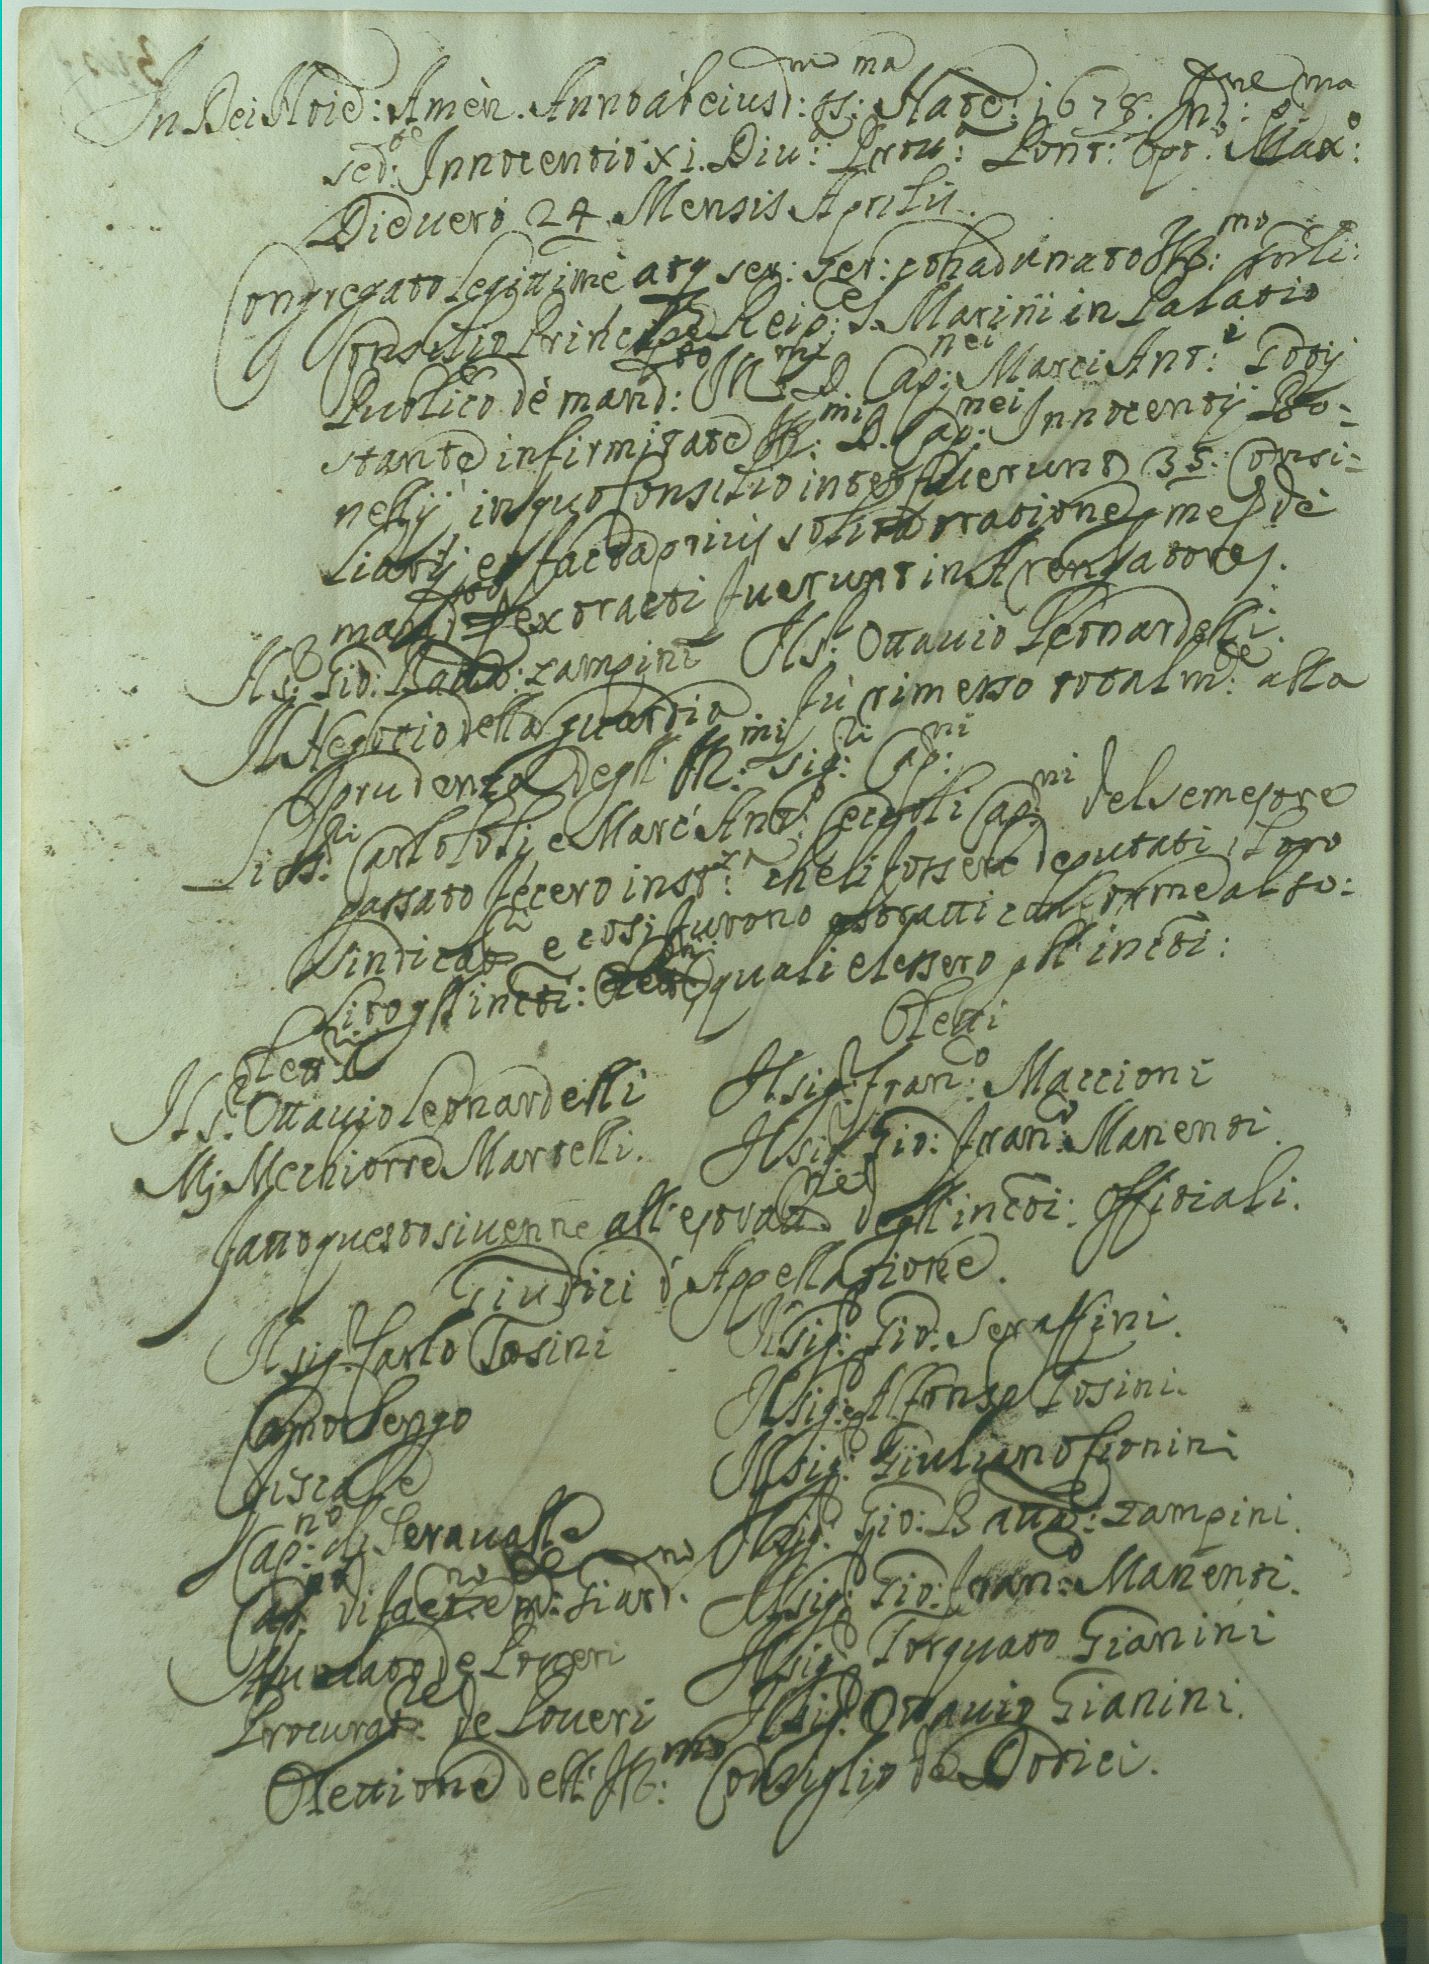 In Dei Noie: Amen. Anno ab eiusd: ss:ma Natte: 1678. Ind:ne p:ma
sed:te Innocentio XI. Diu:a Prou:a Pont: Opt:o Max:o
Die uero 24 Mensis Aprilis.
Congregato legitimè atq ser: ser: cohadunato Ill:mo Gnli:
Consilio Principe Reip:ce S. Marini in Palatio
Publico dè mand:to Ill:mi D. Cap:nei Marci Ant:i Gozij
stante infirmitate Ill:mi D. Cap:nei Innocentij Bo=
nellij in quo Consilio interfuerunt 35: Consi=
liarij et facta prius solita oratione, me dè
mand:to extracti fuerunt in Arengatores.
Il s:r Gio: Batta: Zampini Il s:r Ottauio Leonardelli.
Il Negotio della guardia fù rimesso totalm:te alla
prudenza degl' Ill:mi Sig:ri Cap:ni
Li ss:ri Carlo Loli, e Marc' Ant:o Ceccoli Cap:ni del semestre
passato fecero inst:za che li fossero deputati i loro
Sindicat:ri e cosi furono estratti conforme al so=
lito gl' incti: quali elessero gl' incti:
Elett:ri Eletti
Il s:r Ottauio Leonardelli Il sig:r Fran:co Maccioni
Mj Melchiorre Martelli. Il sig:r Gio: Fran:co Manenti.
Fatto questo si uenne all' estratt:ne degl' incti: Offitiali.
Giudici d' Appellatione.
Il sig:r Carlo Tosini Il sig:r Gio: Seraffini.
Camorlengo Il sig:r Alfonso Tosini.
Fiscale Il sig:r Giuliano Gionini
Cap:no di Seraualle Il sig:r Gio: Batta: Zampini.
Cap:no di Faet:no e M:te Giard:no Il sig:r Gio: Fran:co Manenti.
Auocato de Poueri Il sig:r Torquato Gianini
Procurat:re de Poueri Il sig:r Ottauio Gianini.
Elettione dell' Ill:mo Consiglio de Dodici.